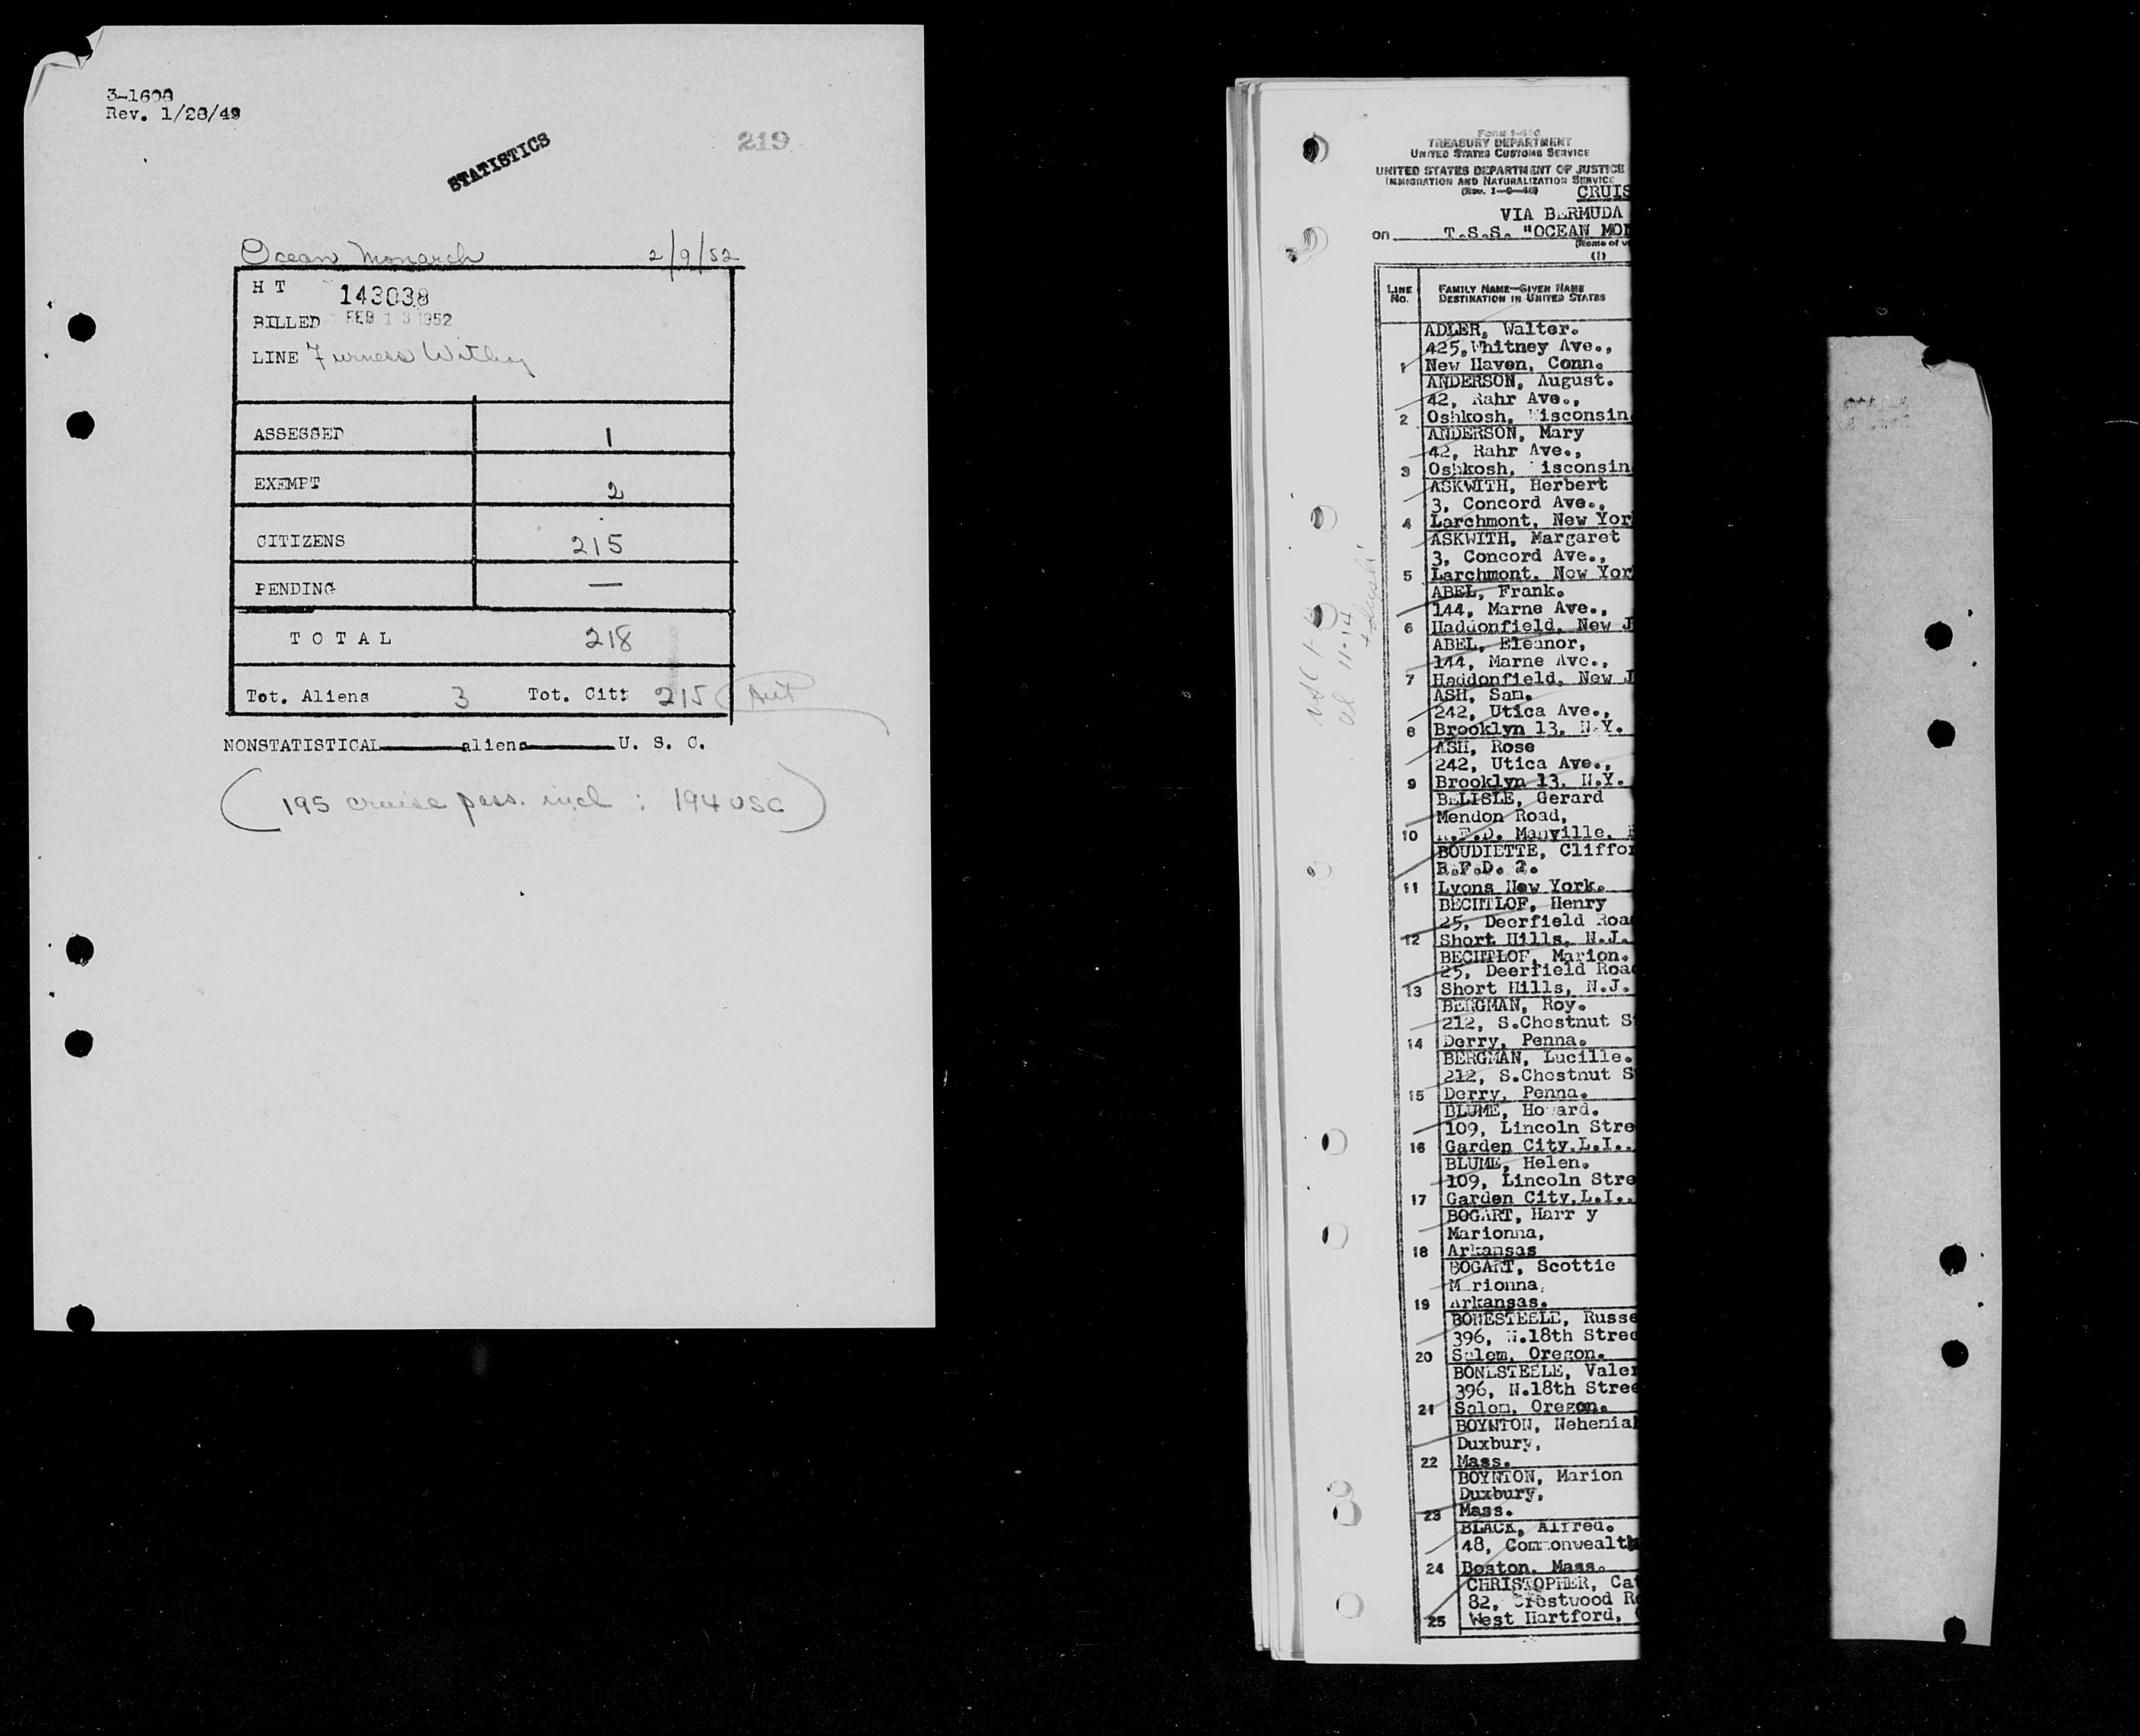 3-1608
Rev. 1/28/49
STATISTICS
219
Ocean Monarch 2/9/52
H T 143038
BILLED FEB 13 1952
LINE Furness Withy
ASSESSED 1
EXEMPT 2
CITIZENS 215
PENDING —
T O T A L 218
Tot. Aliens 3 Tot. Citt 215
NONSTATISTICAL aliens U. S. C.
(195 cruise pass. incl : 194 USC)
TREASURY DEPARTMENT
UNITED STATES CUSTOMS SERVICE
UNITED STATES DEPARTMENT OF JUSTICE
IMMIGRATION AND NATURALIZATION SERVICE
CRUIS
VIA BERMUDA
on T.S.S. "OCEAN MO
(Name of v
(1)
LINE No. FAMILY NAME—GIVEN NAME
DESTINATION IN UNITED STATES
ADLER, Walter.
425, Whitney Ave.,
1 New Haven, Conn.
ANDERSON, August.
42, Rahr Ave.,
2 Oshkosh, Wisconsin
ANDERSON, Mary
42, Rahr Ave.,
3 Oshkosh, isconsin
ASKWITH, Herbert
3, Concord Ave.,
4 Larchmont, New Yor
ASKWITH, Margaret
3, Concord Ave.,
5 Larchmont, New Yor
ABEL, Frank.
144, Marne Ave.,
6 Haddonfield, New J
ABEL, Eleanor,
144, Marne Ave.,
7 Haddonfield, New J
ASH, Sam.
242, Utica Ave.,
8 Brooklyn 13, N.Y.
ASH, Rose
242, Utica Ave.,
9 Brooklyn 13, N.Y.
BELISLE, Gerard
Mendon Road,
10 R.F.D. Manville, R
BOUDIETTE, Cliffor
R.F.D. 2.
11 Lyons New York.
BECHTLOF, Henry
25, Deerfield Roa
12 Short Hills, N.J.
BECHTLOF, Marion.
25, Deerfield Roa
13 Short Hills, N.J.
BERGMAN, Roy.
212, S.Chestnut S
14 Derry, Penna.
BERGMAN, Lucille.
212, S.Chestnut S
15 Derry, Penna.
BLUME, Howard.
109, Lincoln Stre
16 Garden City.L.I.
BLUME, Helen.
109, Lincoln Stre
17 Garden City.L.I.
BOGART, Harr y
Marionna,
18 Arkansas
BOGART, Scottie
M rionna,
19 Arkansas.
BONESTEELE, Russe
396, N.18th Stree
20 Salem, Oregon.
BONESTEELE, Valer
396, N.18th Stree
21 Salem, Oregon.
BOYNTON, Nehemia
Duxbury,
22 Mass.
BOYNTON, Marion
Duxbury,
23 Mass.
BLACK, Alfred.
48, Commonwealth
24 Boston, Mass.
CHRISTOPHER, Ca
82, Crestwood R
25 West Hartford,